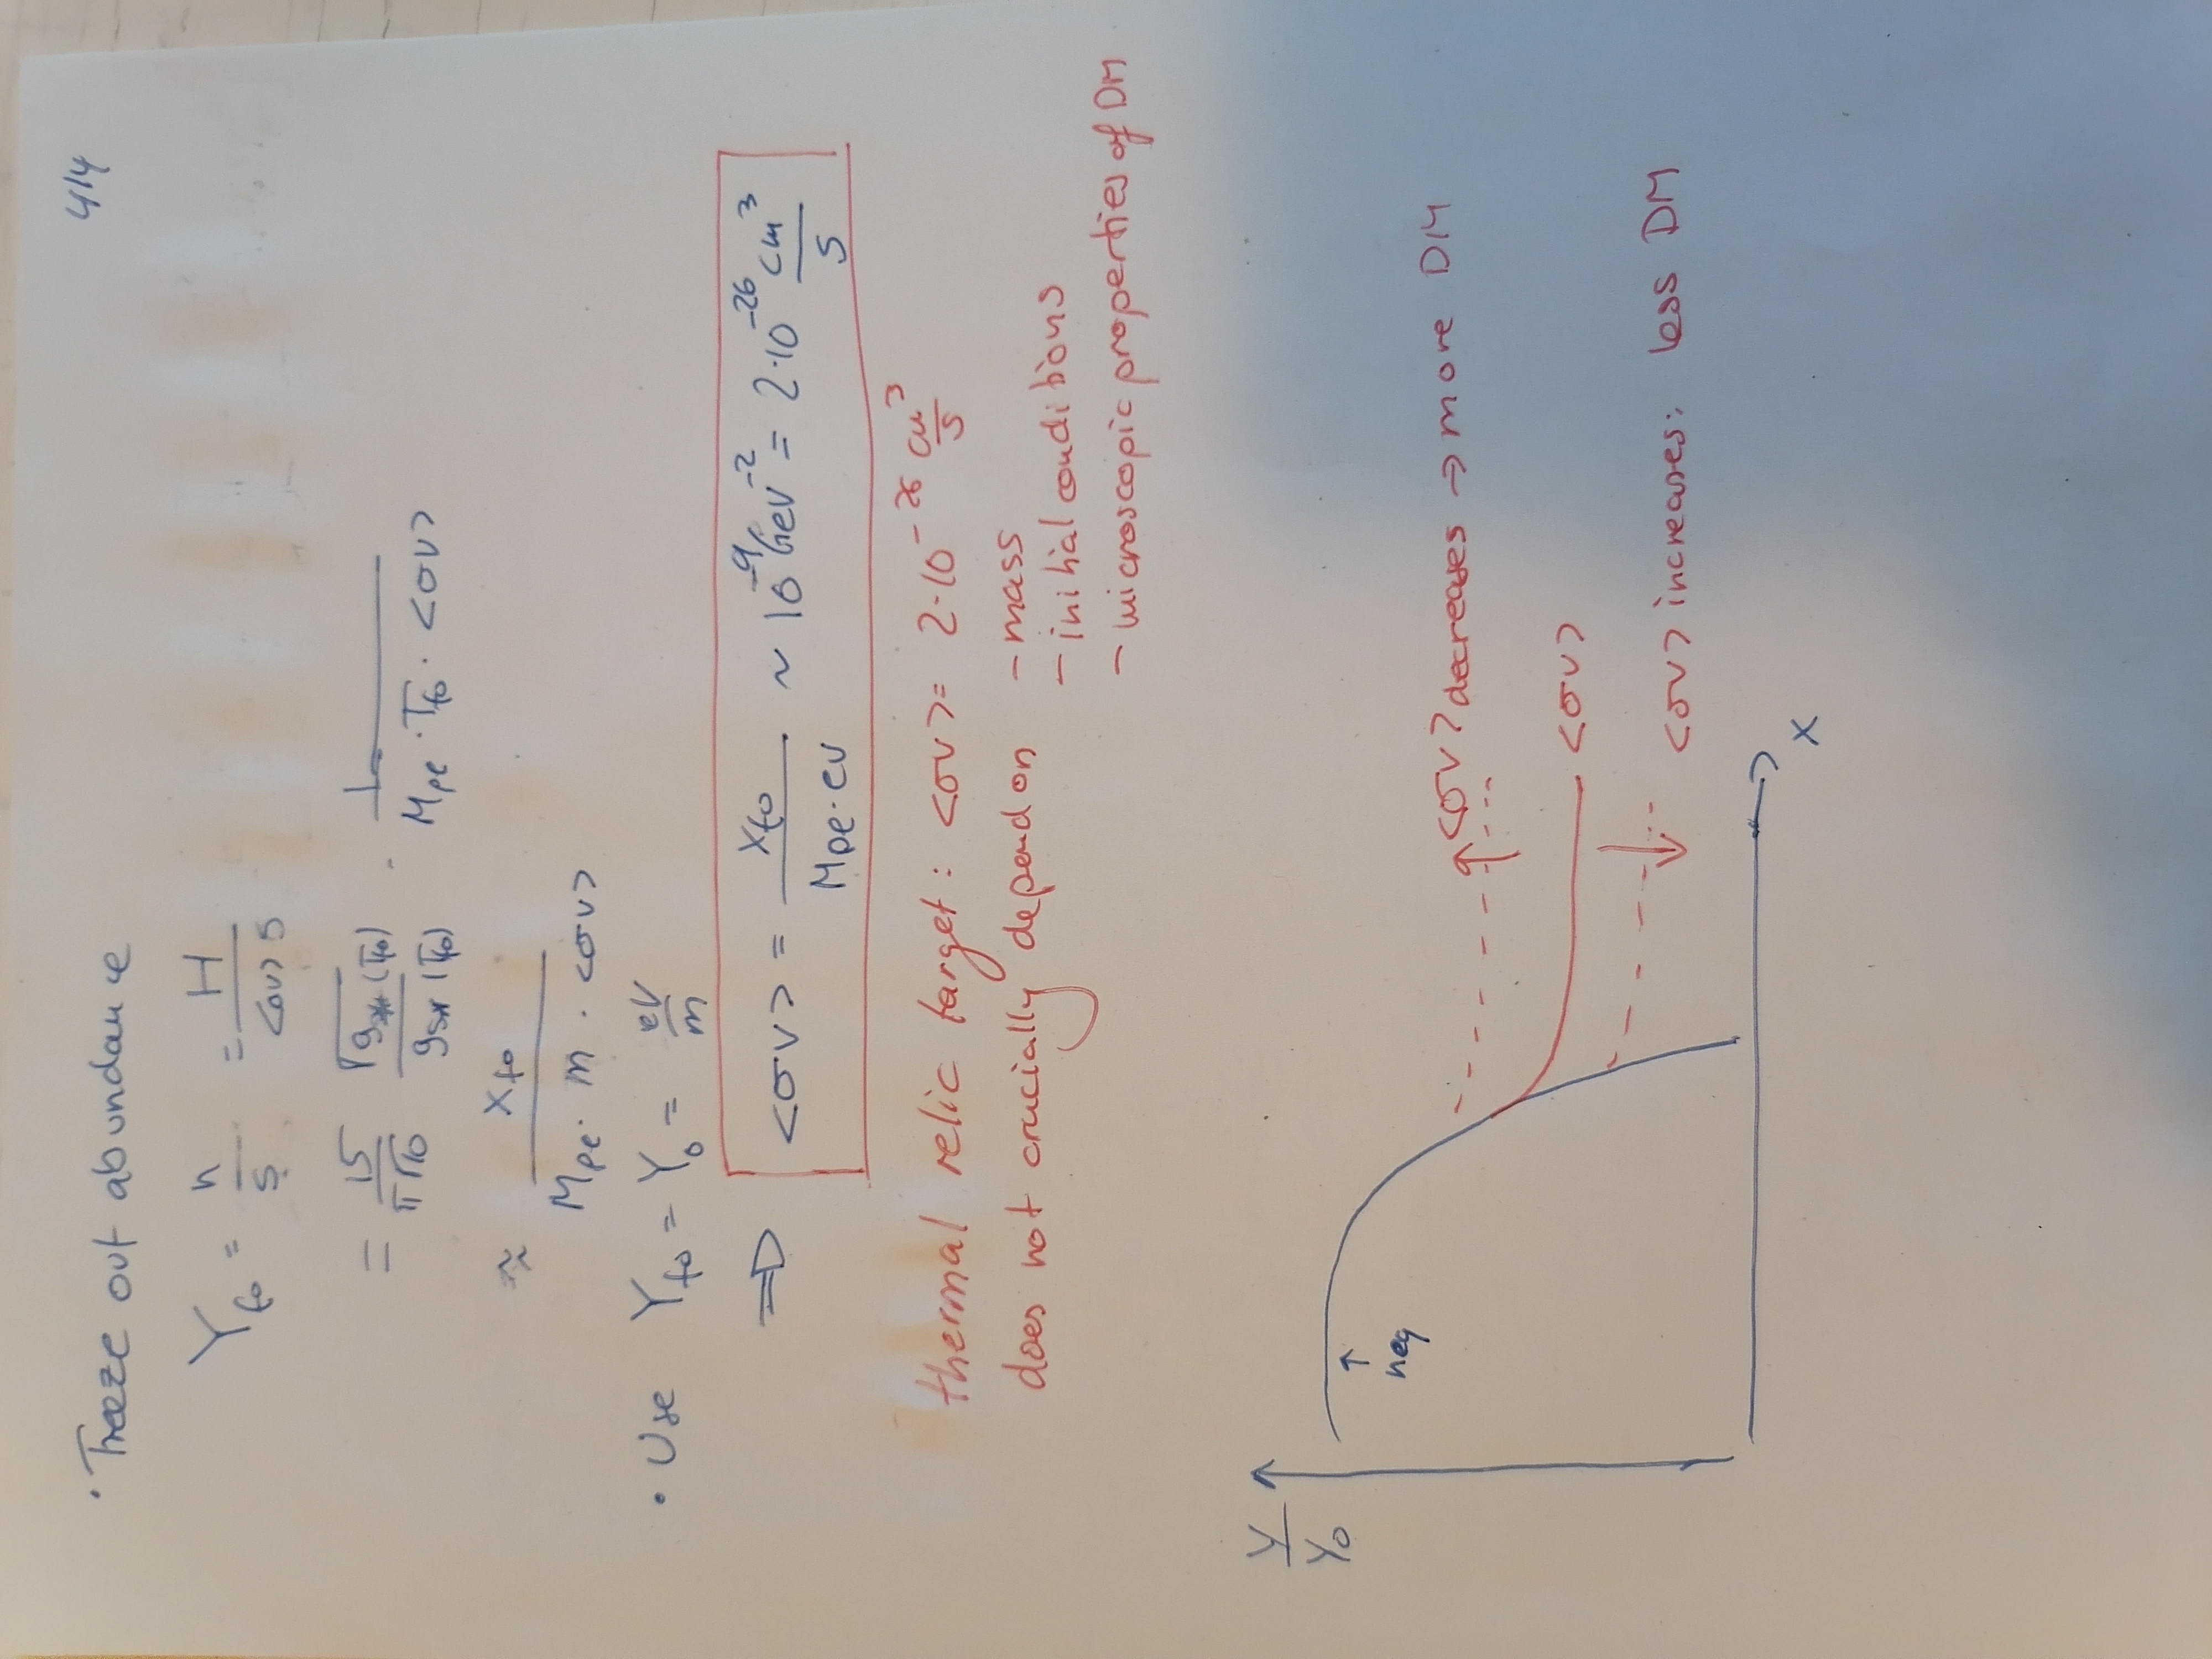 4/4
· Freeze out abundance
Y_fo = n/s = H/(<σv> s)
= 15/(π√10) · √g_**(T_fo)/g_s*(T_fo) · 1/(M_pl · T_fo · <σv>)
≈ x_fo/(M_pl · m · <σv>)
· Use Y_fo = Y_0 = eV/m
⇒ <σv> = x_fo/(M_pl · eV) ~ 10^-9 GeV^-2 = 2·10^-26 cm^3/s
thermal relic target: <σv> = 2·10^-26 cm^3/s
does not crucially depend on - mass
- initial conditions
- microscopic properties of DM
Y/Y_0
↑
neq
<σv> decreases → more DM
<σv>
<σv> increases: less DM
x